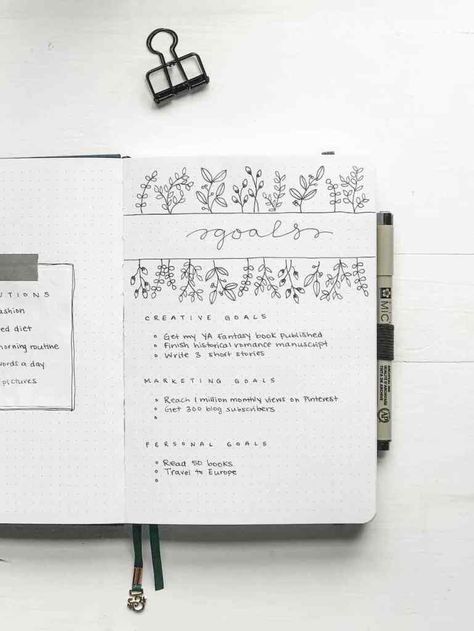 UTIONS
ashion
ed diet
orning routine
words a day
pictures
goals
CREATIVE GOALS
Get my YA Fantasy book published
Finish historical romance manuscript
Write 3 short stories
MARKETING GOALS
Reach 1 million monthly views on Pinterest
Get 300 blog subscribers
PERSONAL GOALS
Read 50 books
Travel to Europe
MIC